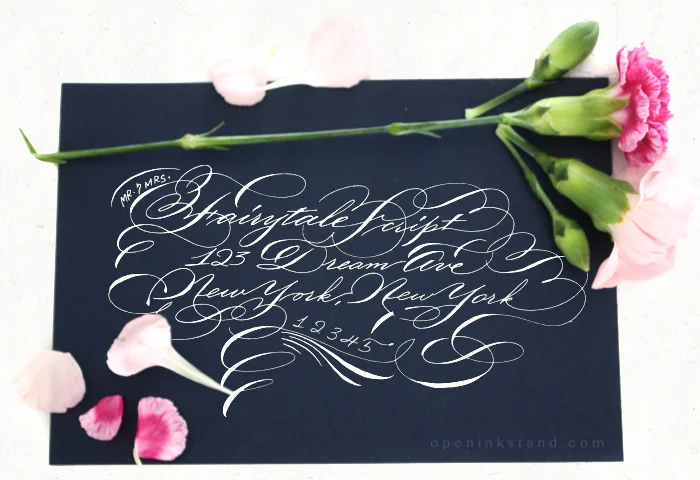 MR. & MRS.
Fairytale Script
123 Dream Ave
New York, New York
12345
openinkstand.com